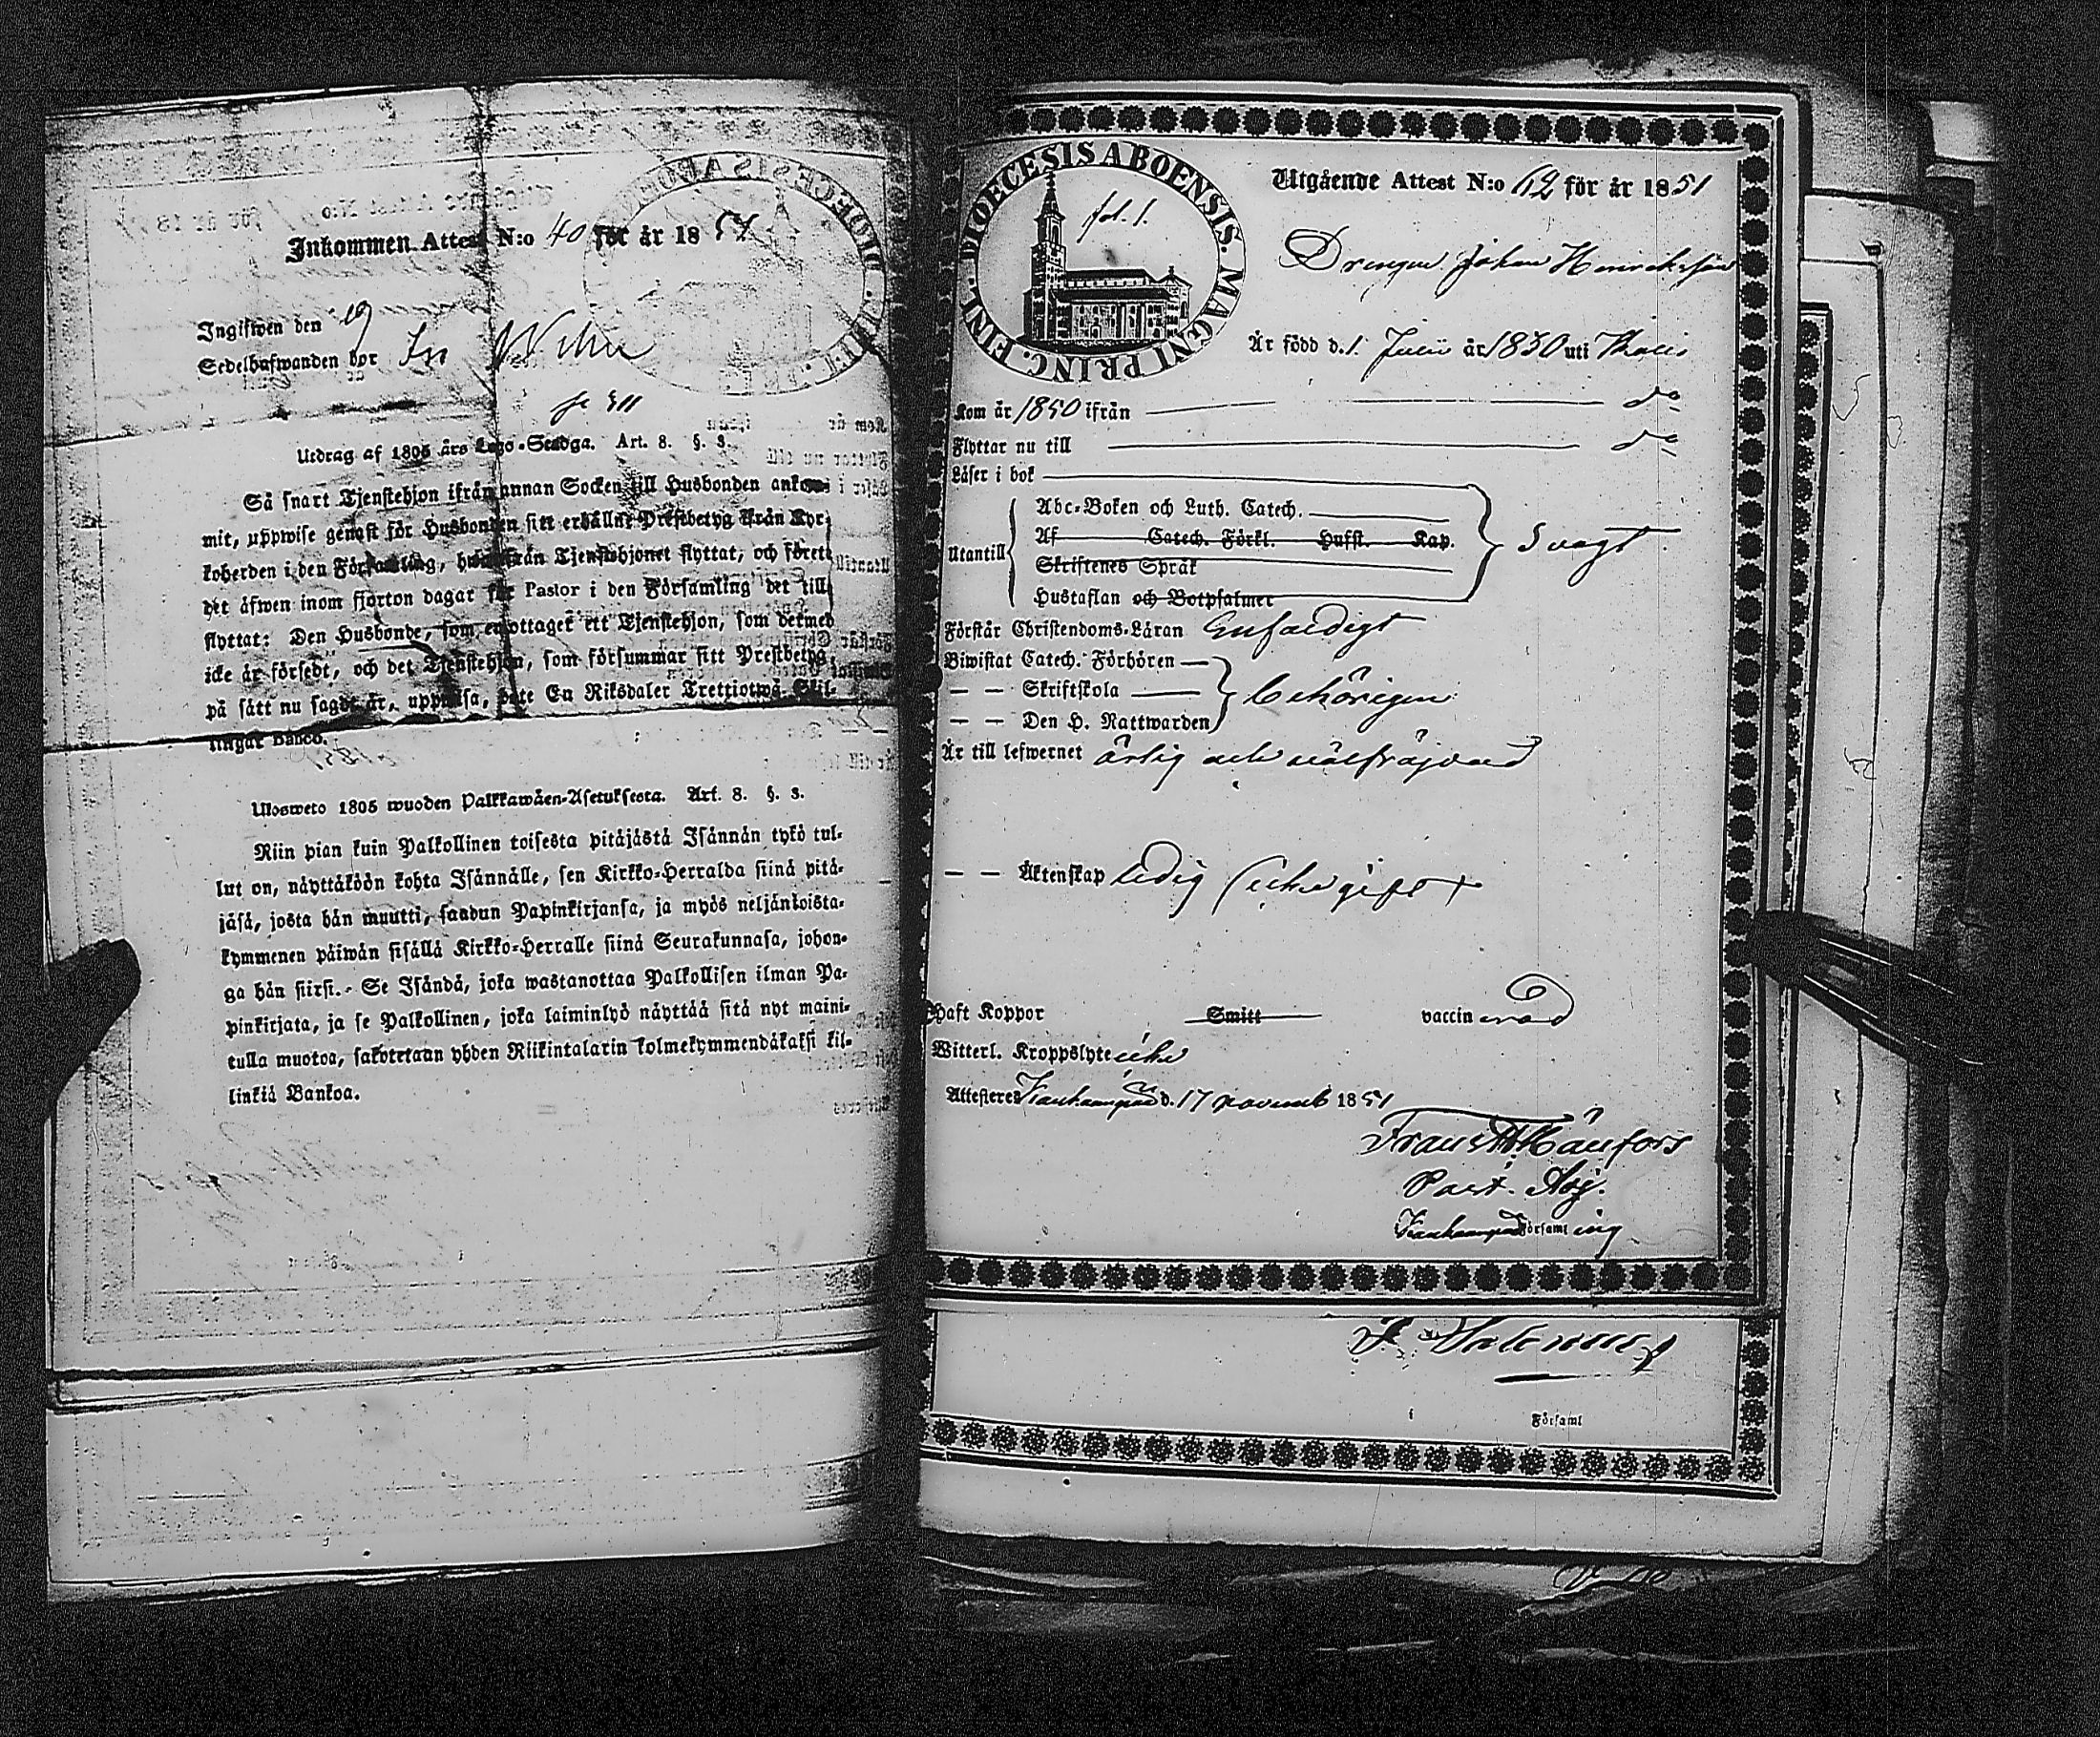 Inkommen Attest N:o 40 för år 18
Ingifwen den 19
Sedelhafwanden bor
Utdrag af 1805 års Lego-Stadga. Art. 8. §. 3.
Så snart Tjenstehjon ifrån annan Socken till Husbonden ankom-
mit, uppwise genast för Husbonden sitt erhållne Prestbetyg ifrån Kyr-
koherden i den Församling, hwarifrån Tjenstehjonet flyttat, och förete
det äfwen inom fjorton dagar för Pastor i den Församling det till-
flyttat: Den Husbonde, som emottager ett Tjenstehjon, som dermed
icke är försedt, och det Tjenstehjon, som försummar sitt Prestbetyg,
på sätt nu sagdt är, uppwisa, böte En Riksdaler Trettiotwå Skil-
lingar Banco.
Ulosweto 1805 wuoden Palkkawäen-Asetuksesta. Art. 8. §. 3.
Niin pian kuin Palkollinen toisesta pitäjästä Isännän tykö tul-
lut on, näyttäköön kohta Isännälle, sen Kirkko-Herralda siinä pitä-
jäsä, josta hän muutti, saadun Papinkirjansa, ja myös neljäntoista-
kymmenen päiwän sisällä Kirkko-Herralle siinä Seurakunnasa, johon-
ga hän siirsi. - Se Isändä, joka wastanottaa Palkollisen ilman Pa-
pinkirjata, ja se Palkollinen, joka laiminlyö näyttää sitä nyt maini-
tulla muotoa, sakotetaan yhden Riikintalarin kolmekymmendäkaksi kil-
linkiä Bankoa.
DIOECESIS ABOENSIS. MAGNI PRINC. FINL.
fol. 1.
Utgående Attest N:o 62 för år 1851
Drengen Johan Henriksson
Är född d. 1 Junii år 1830 uti
Kom år 1850 ifrån do
Flyttar nu till do
Läser i bok
Utantill
Abc-Boken och Luth. Catech.
Af Catech. Förkl. Husst. Kap.
Skriftenes Språk
Hustaflan och Botpsalmer
Svagt
Förstår Christendoms-Läran Enfaldigt
Biwistat Catech. Förhören
— — Skriftskola
— — Den H. Nattwarden
behörigen
Är till lefwernet ärlig och välfräjdad
— — Äktenskap ledig (icke gift)
Haft Koppor Smitt vaccinerad
Witterl. Kroppslyte icke
Attesteres d. 17 novemb 1851
Past. Adj.
Församling
Församl